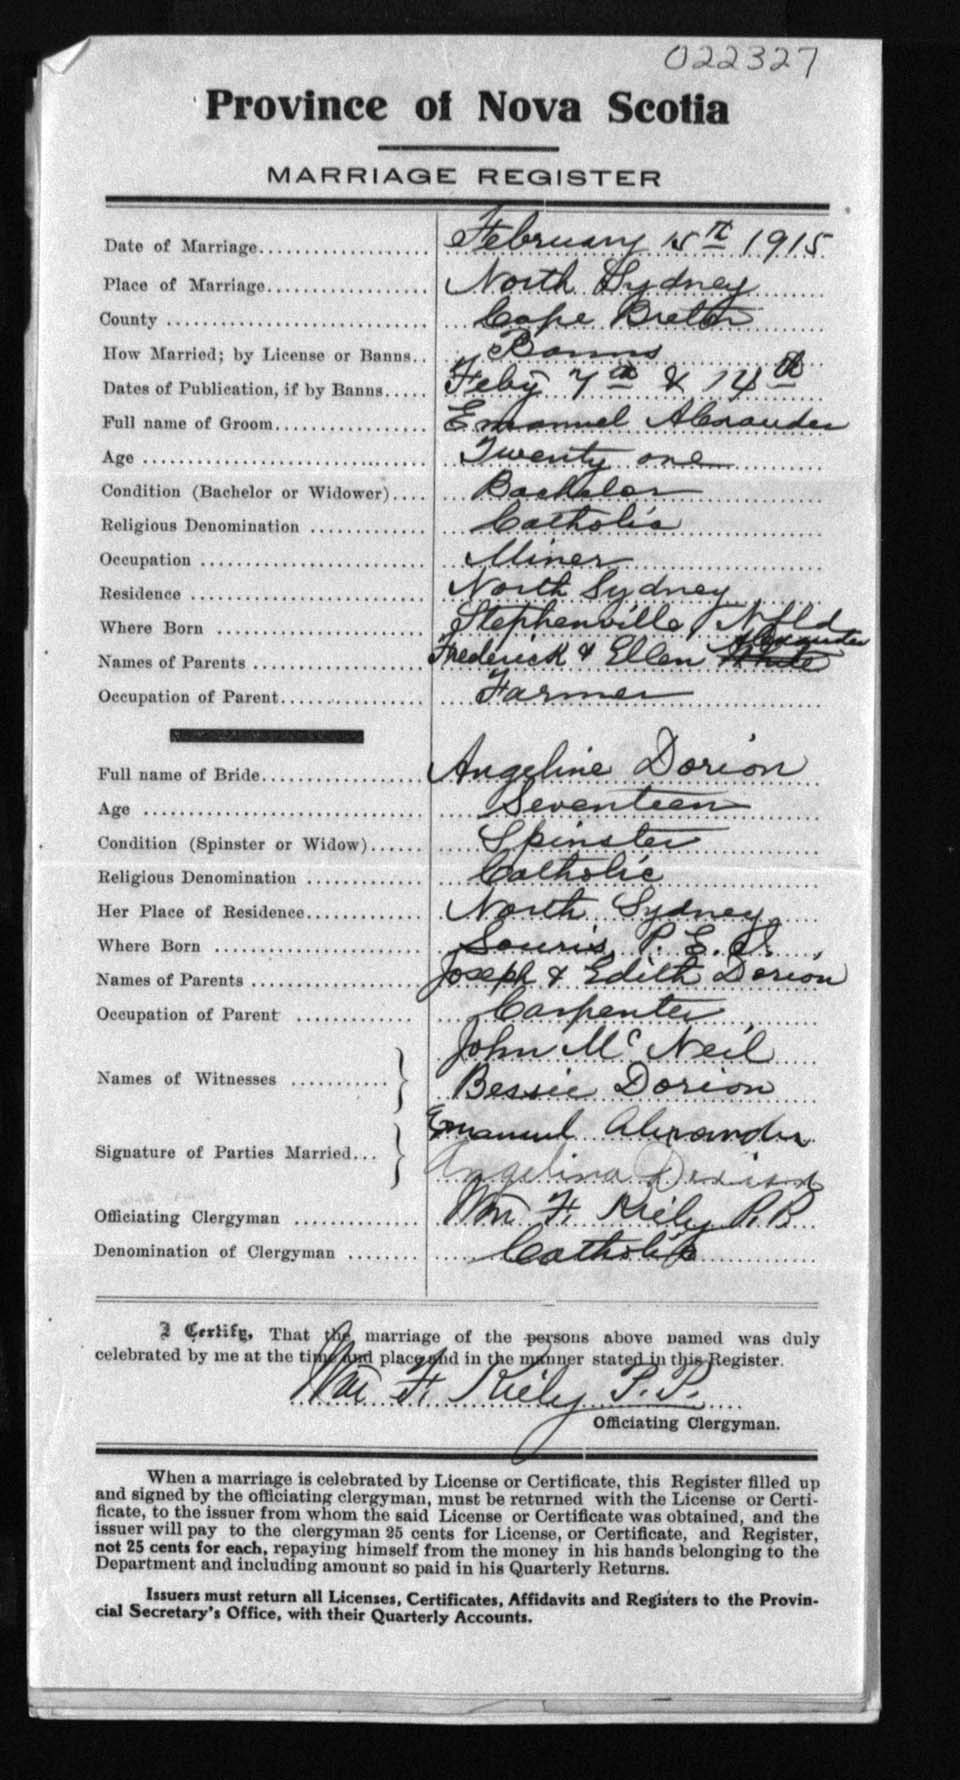 022327
Province of Nova Scotia
MARRIAGE REGISTER
Date of Marriage February 15th 1915
Place of Marriage North Sydney
County Cape Breton
How Married; by License or Banns Banns
Dates of Publication, if by Banns Feby 7th & 14th
Full name of Groom Emanuel Alexander
Age Twenty one
Condition (Bachelor or Widower) Bachelor
Religious Denomination Catholic
Occupation Miner
Residence North Sydney
Where Born Stephenville Nfld
Names of Parents Frederick & Ellen White Alexander
Occupation of Parent Farmer
Full name of Bride Angeline Dorion
Age Seventeen
Condition (Spinster or Widow) Spinster
Religious Denomination Catholic
Her Place of Residence North Sydney
Where Born Souris, P. E. I.
Names of Parents Joseph & Edith Dorion
Occupation of Parent Carpenter
Names of Witnesses John McNeil
Bessie Dorion
Signature of Parties Married Emanuel Alexander
Angelina
Officiating Clergyman Wm. F. Kiely P.P.
Denomination of Clergyman Catholic
I Certify, That the marriage of the persons above named was duly
celebrated by me at the time and place and in the manner stated in this Register.
Wm F. Kiely P.P.
Officiating Clergyman.
When a marriage is celebrated by License or Certificate, this Register filled up
and signed by the officiating clergyman, must be returned with the License or Certi-
ficate, to the issuer from whom the said License or Certificate was obtained, and the
issuer will pay to the clergyman 25 cents for License, or Certificate, and Register,
not 25 cents for each, repaying himself from the money in his hands belonging to the
Department and including amount so paid in his Quarterly Returns.
Issuers must return all Licenses, Certificates, Affidavits and Registers to the Provin-
cial Secretary's Office, with their Quarterly Accounts.